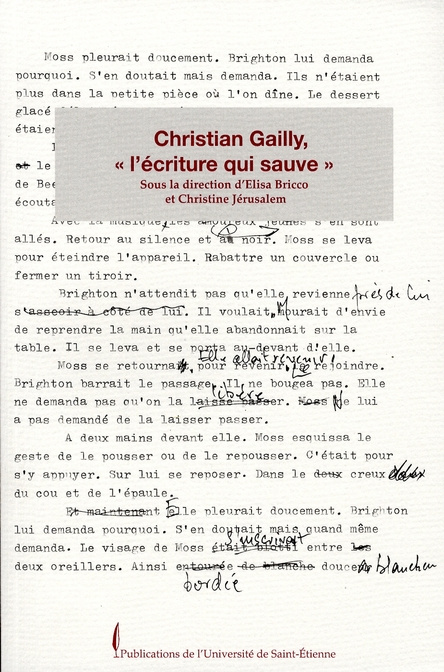 Moss pleurait doucement. Brighton lui demanda
pourquoi. S'en doutait mais demanda. Ils n'étaient
plus dans la petite pièce où l'on dîne. Le dessert
glacé
étaier
Christian Gailly,
« l'écriture qui sauve »
Sous la direction d'Elisa Bricco
et Christine Jérusalem
le
de Bee
écouta
Avec la musique, les amoureux jeunes s'en sont
allés. Retour au silence et au noir. Moss se leva
pour éteindre l'appareil. Rabattre un couvercle ou
fermer un tiroir.
Brighton n'attendit pas qu'elle revienne près de lui
s'asseoir à côté de lui. Il voulait, mourait d'envie
de reprendre la main qu'elle abandonnait sur la
table. Il se leva et se porta au-devant d'elle.
Elle allait revenir
Moss se retourna, pour revenir, le rejoindre.
Brighton barrait le passage. Il ne bougea pas. Elle
libère
ne demanda pas qu'on la laisse passer. Moss Ne lui
a pas demandé de la laisser passer.
A deux mains devant elle. Moss esquissa le
geste de le pousser ou de le repousser. C'était pour
s'y appuyer. Sur lui se reposer. Dans le deux creux doux
du cou et de l'épaule.
Et maintenant Elle pleurait doucement. Brighton
lui demanda pourquoi. S'en doutait mais quand même
s'inscrivait
demanda. Le visage de Moss était blotti entre les
deux oreillers. Ainsi entourée de blanche douce blancheur
bordée
Publications de l'Université de Saint-Étienne